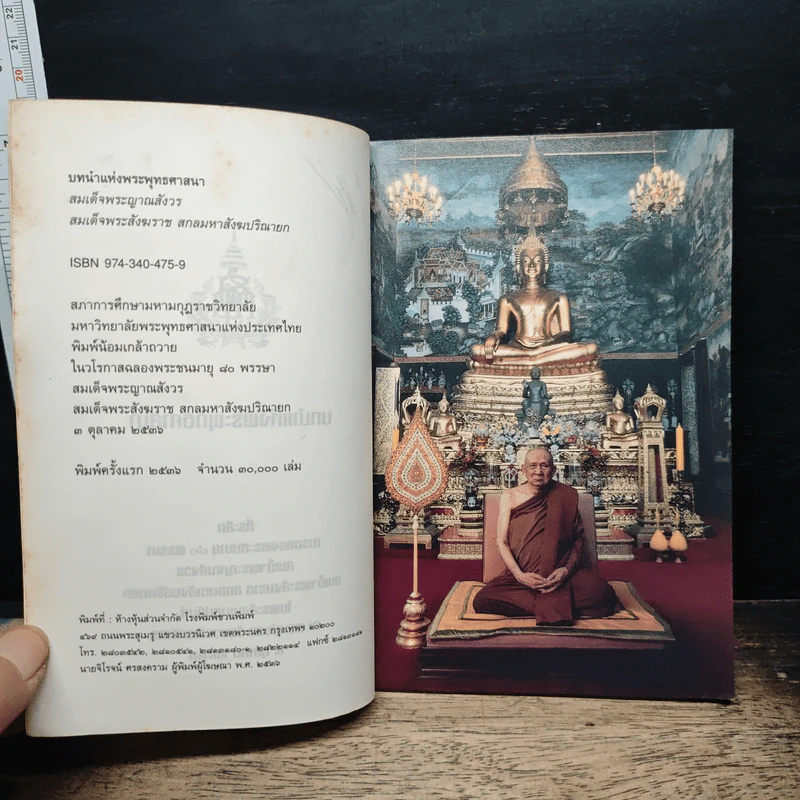 บทนำแห่งพระพุทธศาสนา
สมเด็จพระญาณสังวร
สมเด็จพระสังฆราช สกลมหาสังฆปริณายก
ISBN 974-340-475-9
สภาการศึกษามหามกุฏราชวิทยาลัย
มหาวิทยาลัยพระพุทธศาสนาแห่งประเทศไทย
พิมพ์น้อมเกล้าถวาย
ในวโรกาสฉลองพระชนมายุ ๘๐ พรรษา
สมเด็จพระญาณสังวร
สมเด็จพระสังฆราช สกลมหาสังฆปริณายก
๓ ตุลาคม ๒๕๓๖
พิมพ์ครั้งแรก ๒๕๓๖ จำนวน ๓๐,๐๐๐ เล่ม
พิมพ์ที่ : ห้างหุ้นส่วนจำกัด โรงพิมพ์ชวนพิมพ์
๔๖๙ ถนนพระสุเมรุ แขวงบวรนิเวศ เขตพระนคร กรุงเทพฯ ๑๐๒๐๐
โทร. ๒๘๐๓๕๔๒, ๒๘๑๐๕๔๑, ๒๘๑๓๑๘๐-๑, ๒๘๒๒๑๑๔ แฟกซ์
นายจิโรจน์ ศรสงคราม ผู้พิมพ์ผู้โฆษณา พ.ศ. ๒๕๓๖
20
21
22